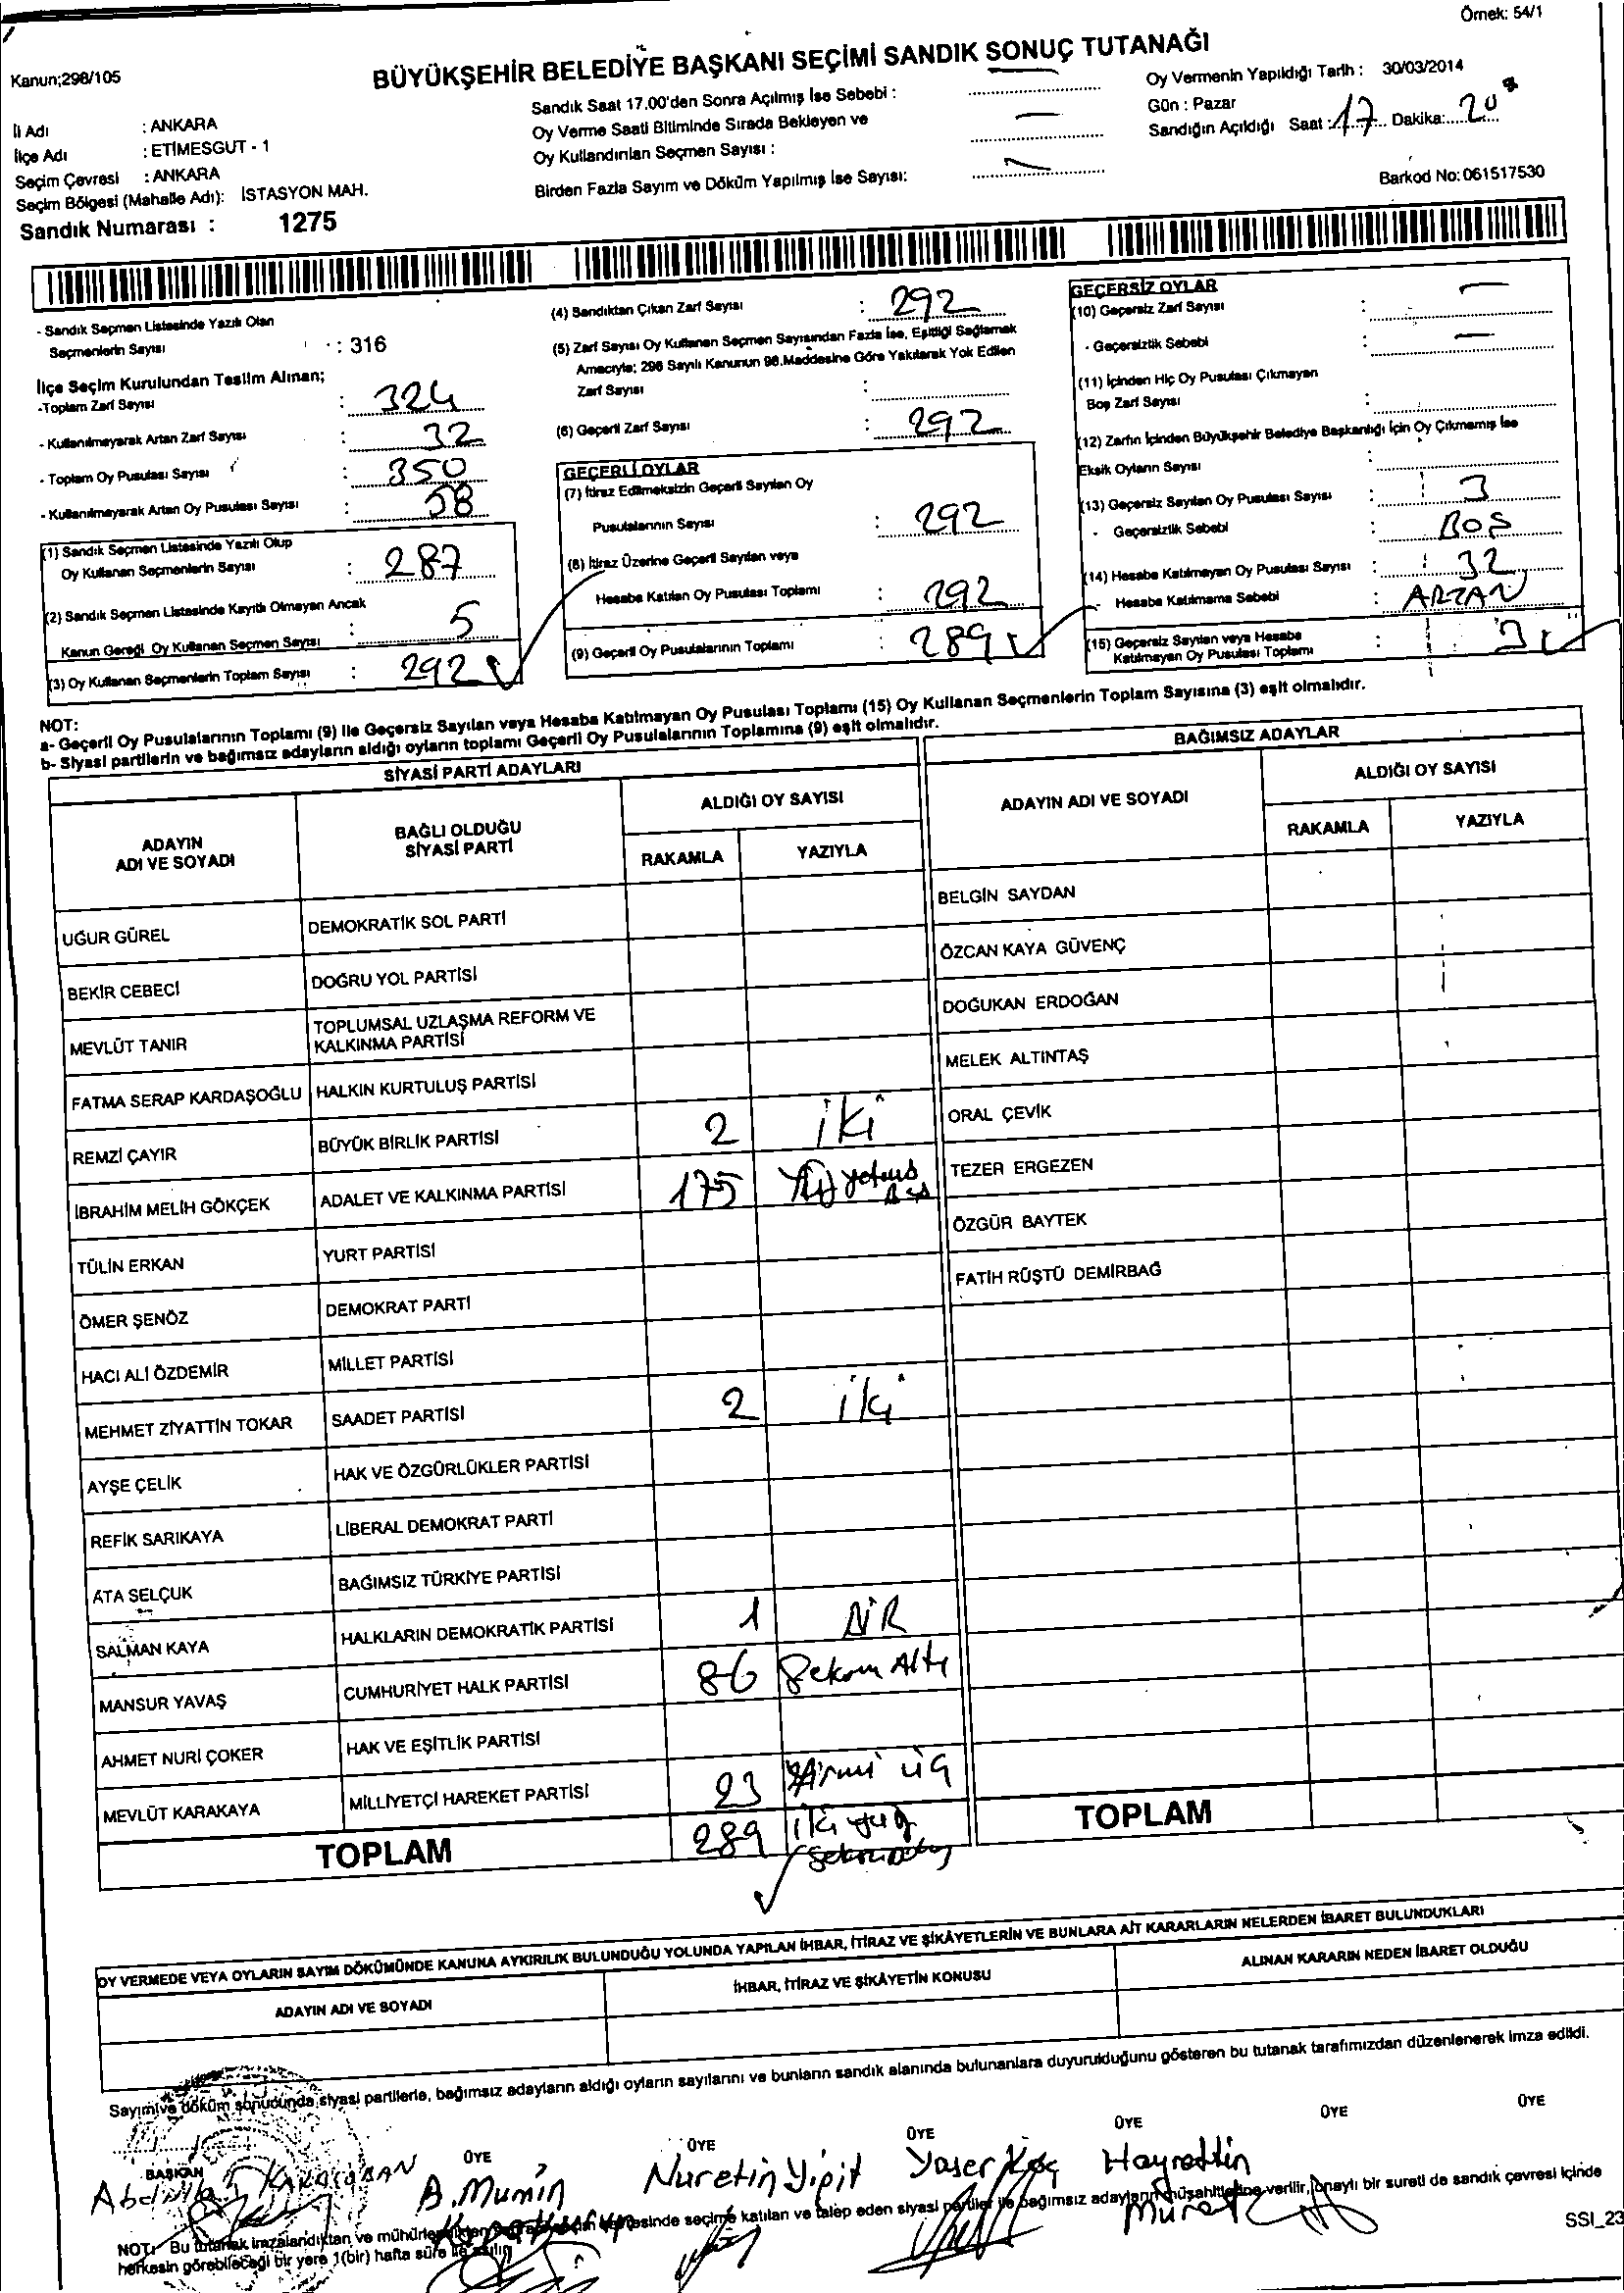 Örnek: 54/1
Kanun;298/105
BÜYÜKŞEHİR BELEDİYE BAŞKANI SEÇİMİ SANDIK SONUÇ TUTANAĞI
İl Adı : ANKARA
İlçe Adı : ETİMESGUT - 1
Seçim Çevresi : ANKARA
Seçim Bölgesi (Mahalle Adı): İSTASYON MAH.
Sandık Numarası : 1275
Sandık Saat 17.00'den Sonra Açılmış İse Sebebi : —
Oy Verme Saati Bitiminde Sırada Bekleyen ve
Oy Kullandırılan Seçmen Sayısı : —
Birden Fazla Sayım ve Döküm Yapılmış İse Sayısı: —
Oy Vermenin Yapıldığı Tarih : 30/03/2014
Gün : Pazar
Sandığın Açıldığı Saat : 17 Dakika: 20
Barkod No: 061517530
- Sandık Seçmen Listesinde Yazılı Olan
Seçmenlerin Sayısı : 316
İlçe Seçim Kurulundan Teslim Alınan;
-Toplam Zarf Sayısı : 324
- Kullanılmayarak Artan Zarf Sayısı : 32
- Toplam Oy Pusulası Sayısı : 350
- Kullanılmayarak Artan Oy Pusulası Sayısı : 58
(1) Sandık Seçmen Listesinde Yazılı Olup
Oy Kullanan Seçmenlerin Sayısı : 287
(2) Sandık Seçmen Listesinde Kayıtlı Olmayan Ancak
Kanun Gereği Oy Kullanan Seçmen Sayısı : 5
(3) Oy Kullanan Seçmenlerin Toplam Sayısı : 292
(4) Sandıktan Çıkan Zarf Sayısı : 292
(5) Zarf Sayısı Oy Kullanan Seçmen Sayısından Fazla İse, Eşitliği Sağlamak
Amacıyla; 298 Sayılı Kanunun 98.Maddesine Göre Yakılarak Yok Edilen
Zarf Sayısı :
(6) Geçerli Zarf Sayısı : 292
GEÇERLİ OYLAR
(7) İtiraz Edilmeksizin Geçerli Sayılan Oy
Pusulalarının Sayısı : 292
(8) İtiraz Üzerine Geçerli Sayılan veya
Hesaba Katılan Oy Pusulası Toplamı : 292
(9) Geçerli Oy Pusulalarının Toplamı : 289
GEÇERSİZ OYLAR
(10) Geçersiz Zarf Sayısı : —
- Geçersizlik Sebebi : —
(11) İçinden Hiç Oy Pusulası Çıkmayan
Boş Zarf Sayısı :
(12) Zarfın İçinden Büyükşehir Belediye Başkanlığı İçin Oy Çıkmamış İse
Eksik Oyların Sayısı :
(13) Geçersiz Sayılan Oy Pusulası Sayısı : 3
- Geçersizlik Sebebi : BOŞ
(14) Hesaba Katılmayan Oy Pusulası Sayısı : 32
- Hesaba Katılmama Sebebi : ARTAN
(15) Geçersiz Sayılan veya Hesaba
Katılmayan Oy Pusulası Toplamı : 3
NOT:
a- Geçerli Oy Pusulalarının Toplamı (9) ile Geçersiz Sayılan veya Hesaba Katılmayan Oy Pusulası Toplamı (15) Oy Kullanan Seçmenlerin Toplam Sayısına (3) eşit olmalıdır.
b- Siyasi partilerin ve bağımsız adayların aldığı oyların toplamı Geçerli Oy Pusulalarının Toplamına (9) eşit olmalıdır.
SİYASİ PARTİ ADAYLARI
ADAYIN ADI VE SOYADI
BAĞLI OLDUĞU SİYASİ PARTİ
ALDIĞI OY SAYISI
RAKAMLA YAZIYLA
UĞUR GÜREL DEMOKRATİK SOL PARTİ
BEKİR CEBECİ DOĞRU YOL PARTİSİ
MEVLÜT TANIR TOPLUMSAL UZLAŞMA REFORM VE KALKINMA PARTİSİ
FATMA SERAP KARDAŞOĞLU HALKIN KURTULUŞ PARTİSİ
REMZİ ÇAYIR BÜYÜK BİRLİK PARTİSİ 2 iki
İBRAHİM MELİH GÖKÇEK ADALET VE KALKINMA PARTİSİ 175
TÜLİN ERKAN YURT PARTİSİ
ÖMER ŞENÖZ DEMOKRAT PARTİ
HACI ALİ ÖZDEMİR MİLLET PARTİSİ
MEHMET ZİYATTİN TOKAR SAADET PARTİSİ 2 iki
AYŞE ÇELİK HAK VE ÖZGÜRLÜKLER PARTİSİ
REFİK SARIKAYA LİBERAL DEMOKRAT PARTİ
ATA SELÇUK BAĞIMSIZ TÜRKİYE PARTİSİ
SALMAN KAYA HALKLARIN DEMOKRATİK PARTİSİ 1 BİR
MANSUR YAVAŞ CUMHURİYET HALK PARTİSİ 86 Seksen Altı
AHMET NURİ ÇOKER HAK VE EŞİTLİK PARTİSİ
MEVLÜT KARAKAYA MİLLİYETÇİ HAREKET PARTİSİ 23 Yirmi üç
TOPLAM 289 iki yüz
BAĞIMSIZ ADAYLAR
ADAYIN ADI VE SOYADI
ALDIĞI OY SAYISI
RAKAMLA YAZIYLA
BELGİN SAYDAN
ÖZCAN KAYA GÜVENÇ
DOĞUKAN ERDOĞAN
MELEK ALTINTAŞ
ORAL ÇEVİK
TEZER ERGEZEN
ÖZGÜR BAYTEK
FATİH RÜŞTÜ DEMİRBAĞ
TOPLAM
OY VERMEDE VEYA OYLARIN SAYIM DÖKÜMÜNDE KANUNA AYKIRILIK BULUNDUĞU YOLUNDA YAPILAN İHBAR, İTİRAZ VE ŞİKÂYETLERİN VE BUNLARA AİT KARARLARIN NELERDEN İBARET BULUNDUKLARI
ADAYIN ADI VE SOYADI
İHBAR, İTİRAZ VE ŞİKÂYETİN KONUSU
ALINAN KARARIN NEDEN İBARET OLDUĞU
Sayım ve döküm sonucunda siyasi partilerle, bağımsız adayların aldığı oyların sayılarını ve bunların sandık alanında bulunanlara duyurulduğunu gösteren bu tutanak tarafımızdan düzenlenerek imza edildi.
BAŞKAN ÜYE ÜYE ÜYE ÜYE ÜYE ÜYE
A.Mumin Nuretin Yiğit Yaser Koç Hayrettin
NOT: Bu tutanak imzalandıktan ve seçime katılan ve talep eden siyasi partiler ile bağımsız adayların müşahitlerine verilir, onaylı bir sureti de sandık çevresi içinde
herkesin görebileceği bir yere 1(bir) hafta süre ile asılır.
SSI_23